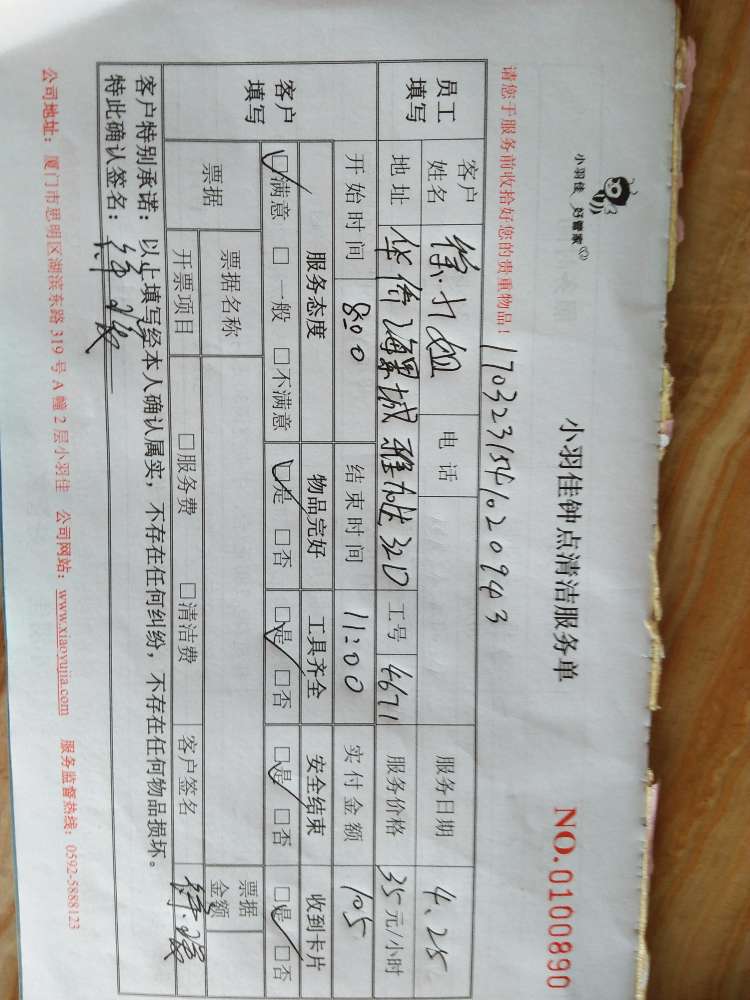 小羽佳 好管家
小羽佳钟点清洁服务单
NO.0100890
请您于服务前收拾好您的贵重物品！
员工填写 客户姓名 徐小姐 电话 服务日期 4.25
地址 华侨海景城雅旭32D 工号 4671 服务价格 35元/小时
开始时间 8:00 结束时间 11:00 实付金额 105
客户填写 服务态度 物品完好 工具齐全 安全结束 收到卡片
☑满意 □一般 □不满意 ☑是 □否 ☑是 □否 ☑是 □否 ☑是 □否
票据 票据名称 票据金额
开票项目 □服务费 □清洁费 客户签名
客户特别承诺：以上填写经本人确认属实，不存在任何纠纷，不存在任何物品损坏。
特此确认签名：
公司地址：厦门市思明区湖滨东路319号A幢2层小羽佳 公司网站：www.xiaoyujia.com 服务监督热线：0592-5888123